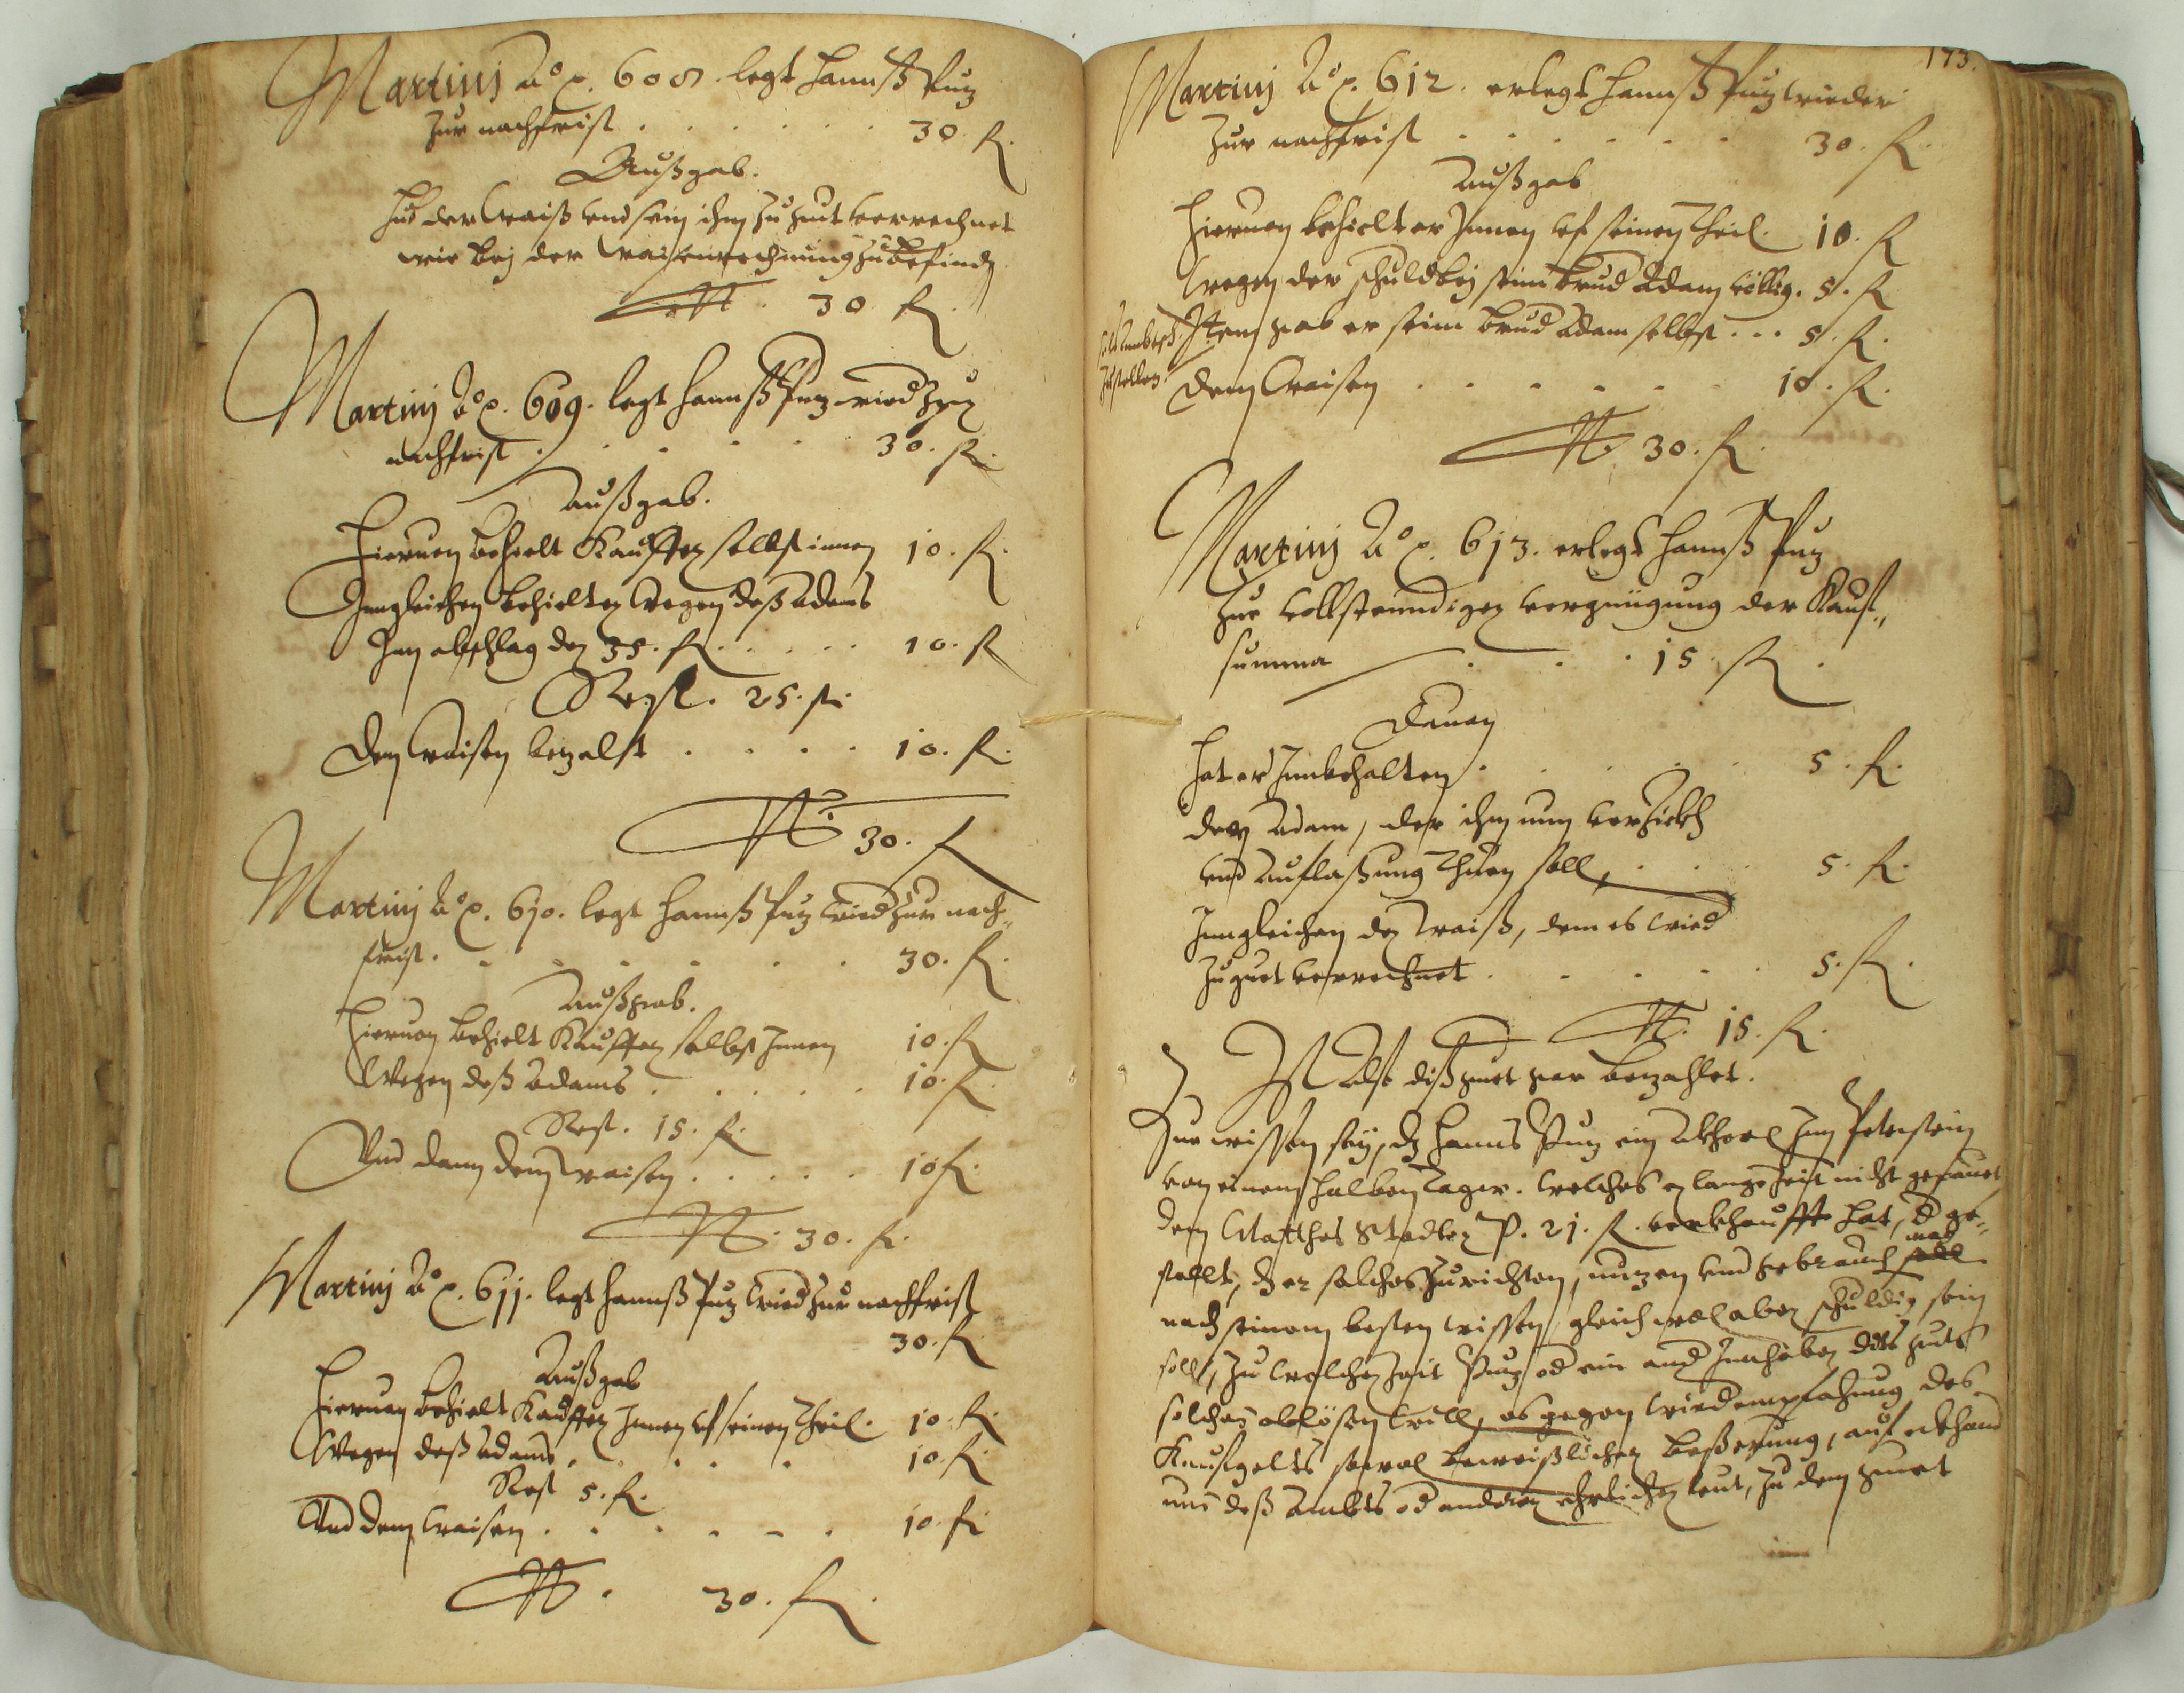 Martinj Aᵒ p. 608. legt Hannß Puz
Zur nachfrist . . . . . . 30 fl.
Außgab.
Hud der Waiß und sein ihm zu gut verrechnet
wie bej der Waisenrechnung zubefinden
St. 30 fl.
Martinj Aᵒ p. 609. legt Hannß Puz wied Zur
nachfrist . . . . . 30. fl.
Außgab.
Hieruon behielt Kauffer selbst innen 10. fl.
Inngleichen behielter Wegen deß Adams
Inn abschlag der 35. fl. . . . . . 10. fl
Rest. 25. fl.
Dem Waisen bezalt . . . . 10. fl.
St. 30. fl
Martinj Aᵒ p. 610. legt Hannß Puz wied Zur nach„
frist . . . . . . . 30. fl.
Außgab.
Hieruon behielt Kauffer selbst Innen 10. fl
Wegen deß Adams . . . . . 10. fl.
Rest. 15. fl.
Und dann dem Waisen . . . . . 10 fl.
St. 30. fl.
Martinj Aᵒ p. 611. legt Hannß Puz wied Zur nachfrist
30. fl
Außgab
Hieruon behielt Kauffer Innen uf seinen Theil. 10. fl.
Wegen deß Adams . . . . . 10. fl
Rest 5. fl.
Und dem Waisen . . . . . . 10. fl
St. 30. fl.
173.
Martinj Aᵒ p. 612. erlegt Hannß Puz wieder
Zur nachfrist . . . . . . 30. fl.
Außgab
Hieruon behielt er Innen uf seinen Theil. 10. fl
Wegen der schuld bej seim brud Adam völlig. 5. fl
Item gab er seim brud Adam selbst . . . 5. fl.
Dem Waisen . . . . . . 10. fl.
St. 30. fl
Martinj Aᵒ p. 613. erlegt Hannß Puz
Zur vollstenndigen vergnügung der Kauf„
summa . . . 15. fl.
Dauon
Hat er Innbehalten . . . . . 5. fl.
dem Adam, der ihm nun verzicht
und auflaßung Thuen soll, . . . 5. fl.
Inngleichen der Waiß, dem es wied
Zuguet verrechnet . . . . . 5. fl.
St. 15. fl.
Ist Also diß guet gar bezahlet.
Zue wissen seÿ, dz Hanns Puz ein Akherl Im Peterstein
von einem halben Tagw. welches er lange Zeit nicht gebauet
dem Matthes Stadler p. 21. fl. verkhaufft hat, d ge„
stallt, dz er solches Zurichten, nuzen und gebrauch mag
nach seinem besten wissen, gleich wol aber schuldig sein
soll, Zu welcher Zeit Puz od ein and Innhaber des guts
solches ablösen will, es gegen wiedempfahung des
Kaufgelts sowol beweißlicher beßerung, auf erkhand
nus deß Ambts od anderer ehrlicher leut, Zu dem guet